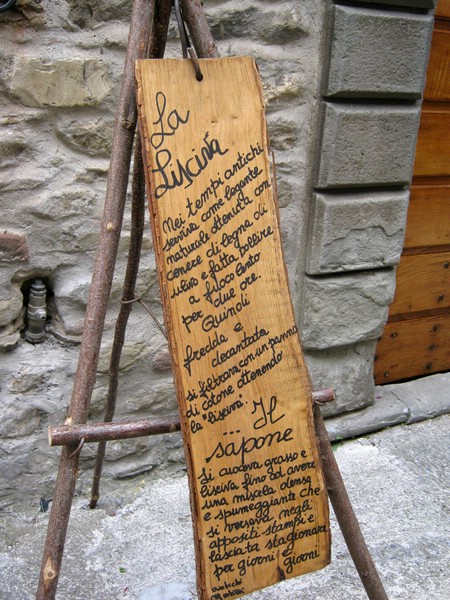 La
Lisciva
Nei tempi antichi
serviva come legante
naturale ottenuta con
cenere di legna di
ulivo e fatta bollire
a fuoco lento
per due ore.
Quindi
fredda e
decantata
si filtrava con un panno
di cotone ottenendo
la "lisciva".
... Il
sapone
Si cuoceva grasso e
lisciva fino ad avere
una miscela densa
e spumeggiante che
si versava negli
appositi stampi e
lasciata stagionare
per giorni e giorni
antichi